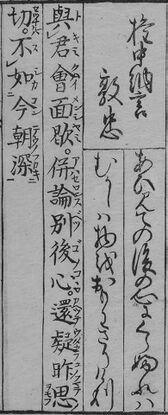 権中納言
敦忠
あひみての後の心にくらふれハ
むかしハ物をおもハさりけり
與君會面歟。併論別後心。還疑昨思
切。不如今朝深